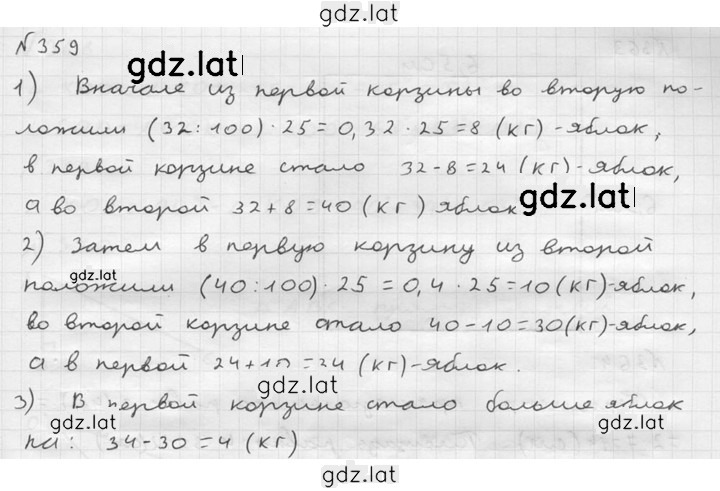 gdz.lat
№359
gdz.lat
gdz.lat
1) Вначале из первой корзины во вторую по-
ложили (32:100)·25=0,32·25=8 (кг)-яблок,
в первой корзине стало 32-8=24 (кг)-яблок,
а во второй 32+8=40 (кг) яблок
gdz.lat
2) Затем в первую корзину из второй
gdz.lat
положили (40:100)·25=0,4·25=10(кг)-яблок,
во второй корзине стало 40-10=30(кг)-яблок,
а в первой 24+10=34 (кг)-яблок.
gdz.lat
3) В первой корзине стало больше яблок
gdz.lat
на: 34-30=4 (кг)
gdz.lat